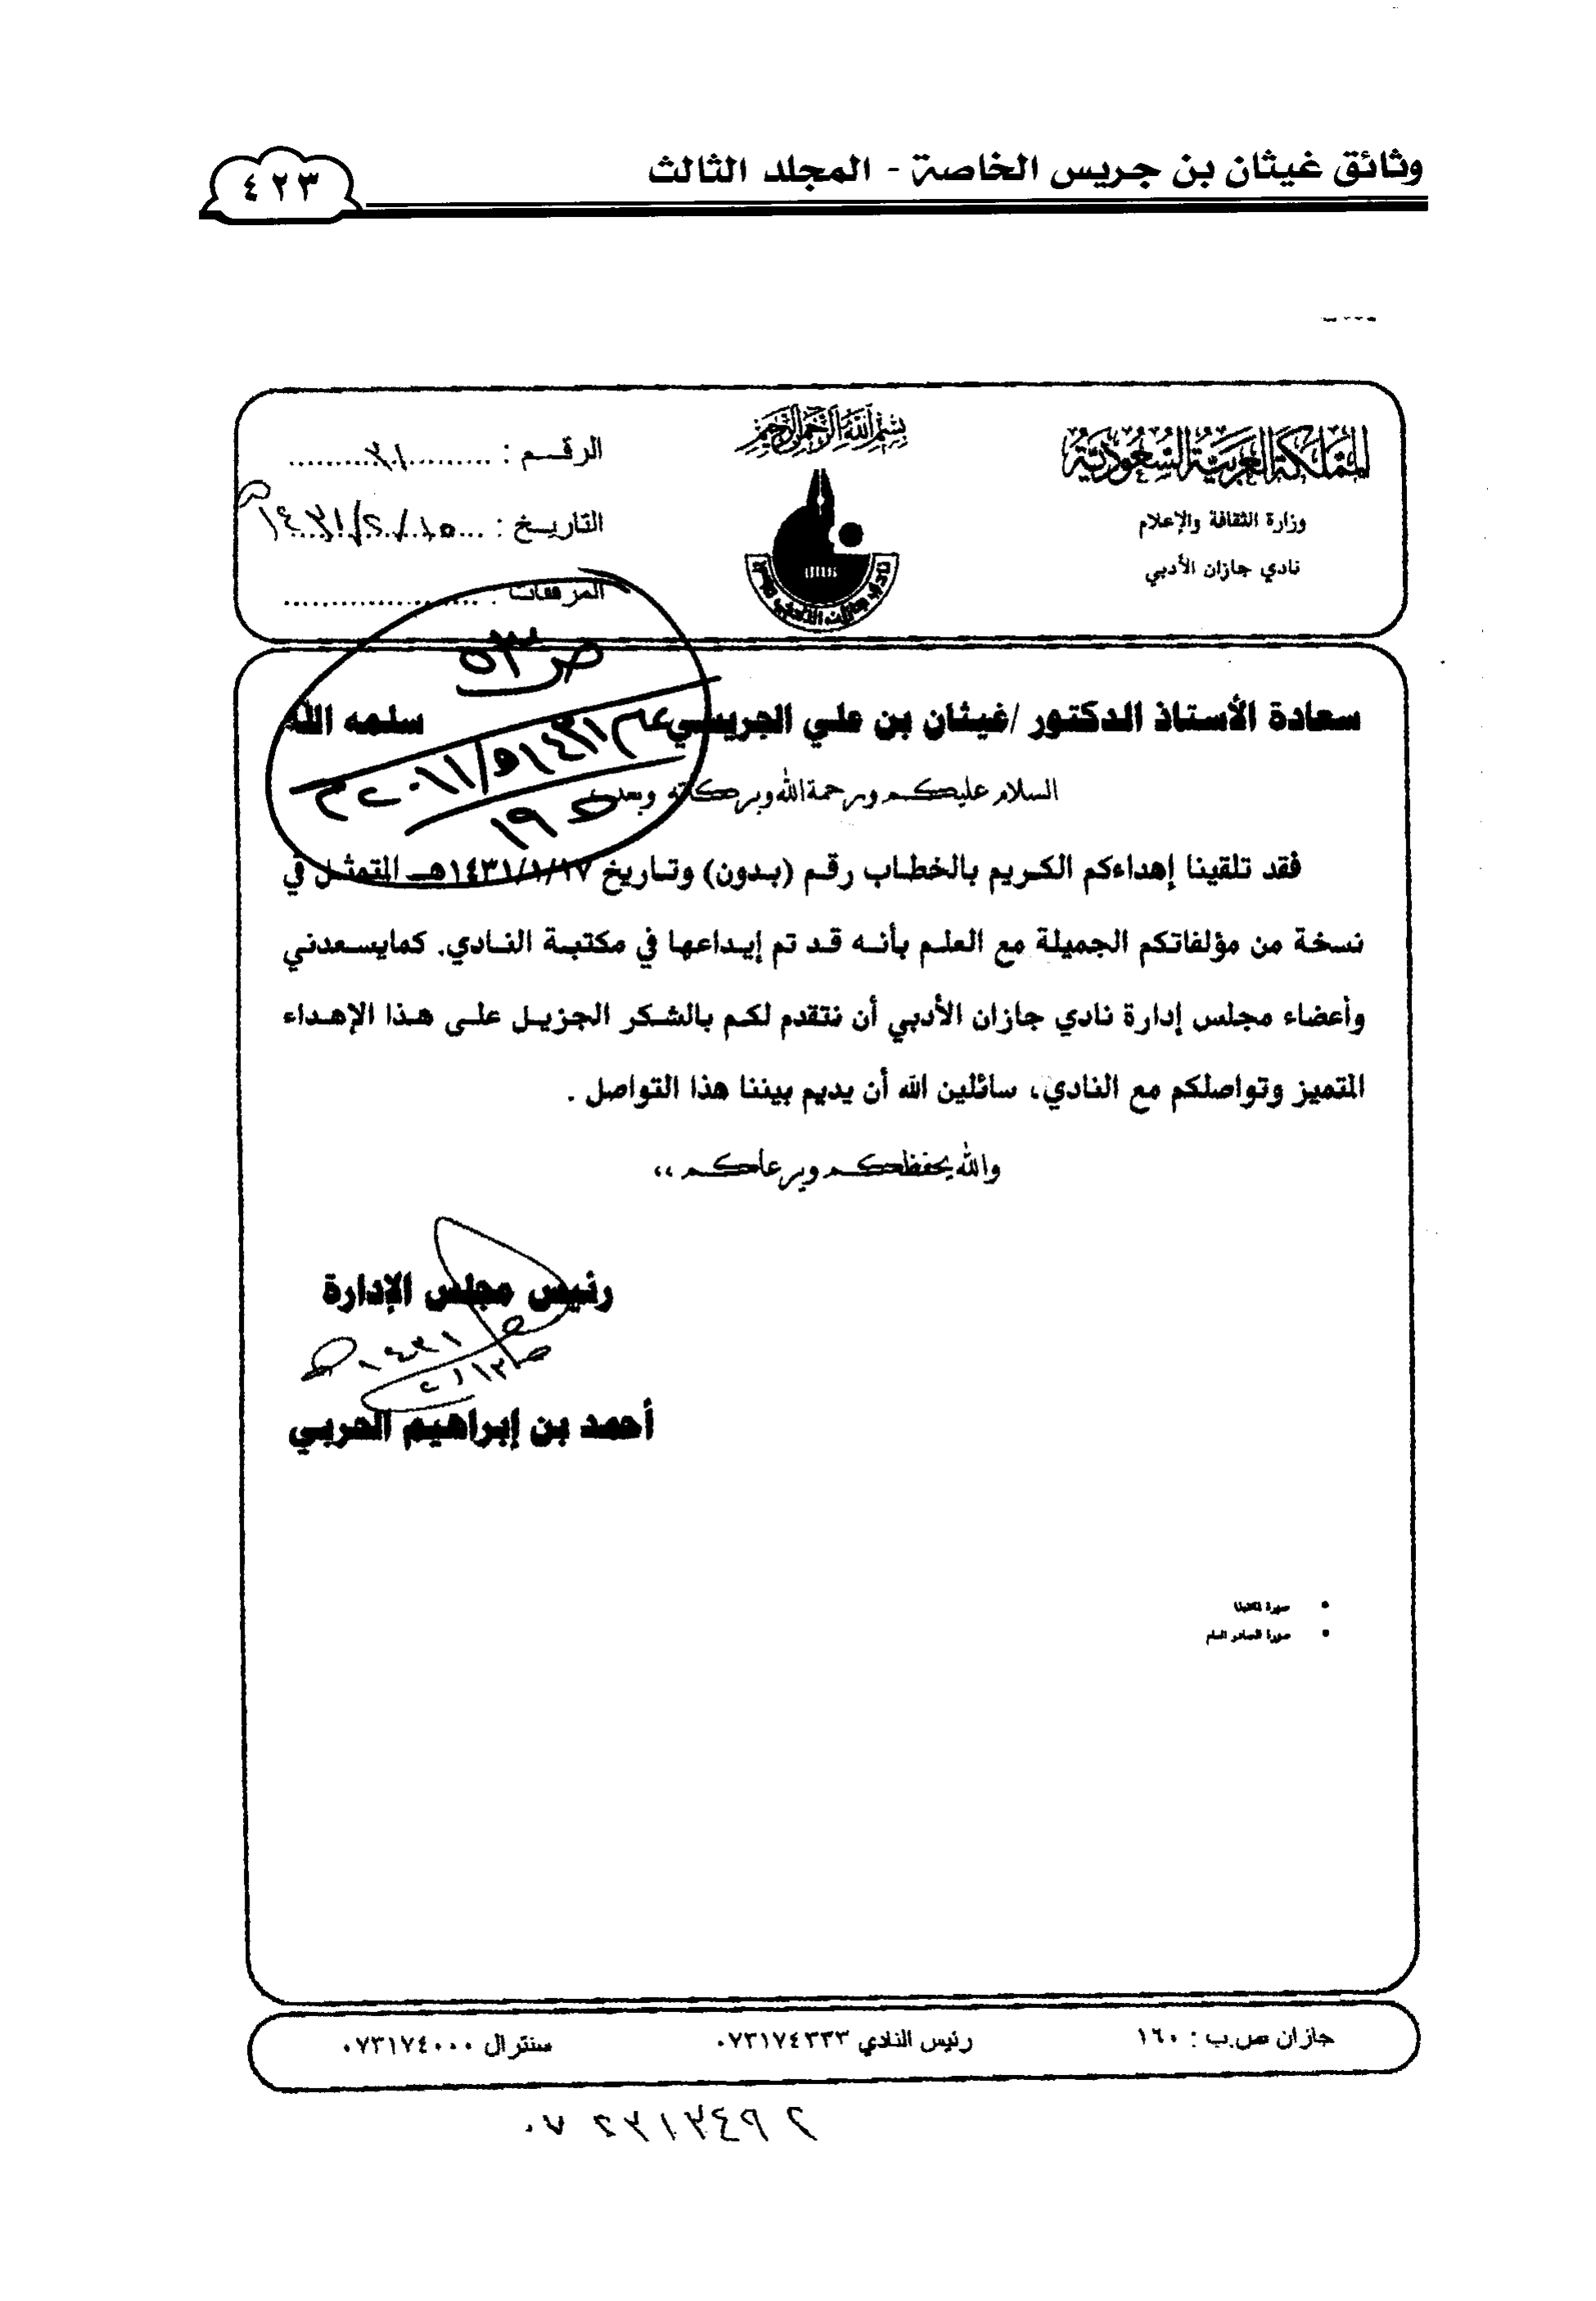 وثائق غيثان بن جريس الخاصة - المجلد الثالث
٤٢٣
المملكة العربية السعودية
وزارة الثقافة والإعلام
نادي جازان الأدبي
بسم الله الرحمن الرحيم
الرقم :
التاريخ : ١٤٣١/٢/١٥هـ
المرفقات :
سعادة الأستاذ الدكتور /غيثان بن علي الجريسي سلمه الله
السلام عليكم ورحمة الله وبركاته وبعد
فقد تلقينا إهداءكم الكريم بالخطاب رقم (بدون) وتاريخ ١٤٣١/١/١٧هـ المتمثل في
نسخة من مؤلفاتكم الجميلة مع العلم بأنه قد تم إيداعها في مكتبة النادي. كمايسعدني
وأعضاء مجلس إدارة نادي جازان الأدبي أن نتقدم لكم بالشكر الجزيل على هذا الإهداء
المتميز وتواصلكم مع النادي، سائلين الله أن يديم بيننا هذا التواصل .
والله يحفظكم ويرعاكم ،،
رئيس مجلس الإدارة
أحمد بن إبراهيم الحربي
جازان ص.ب : ١٦٠
رئيس النادي ٠٧٣١٧٤٣٣٣
سنترال ٠٧٣١٧٤٠٠٠